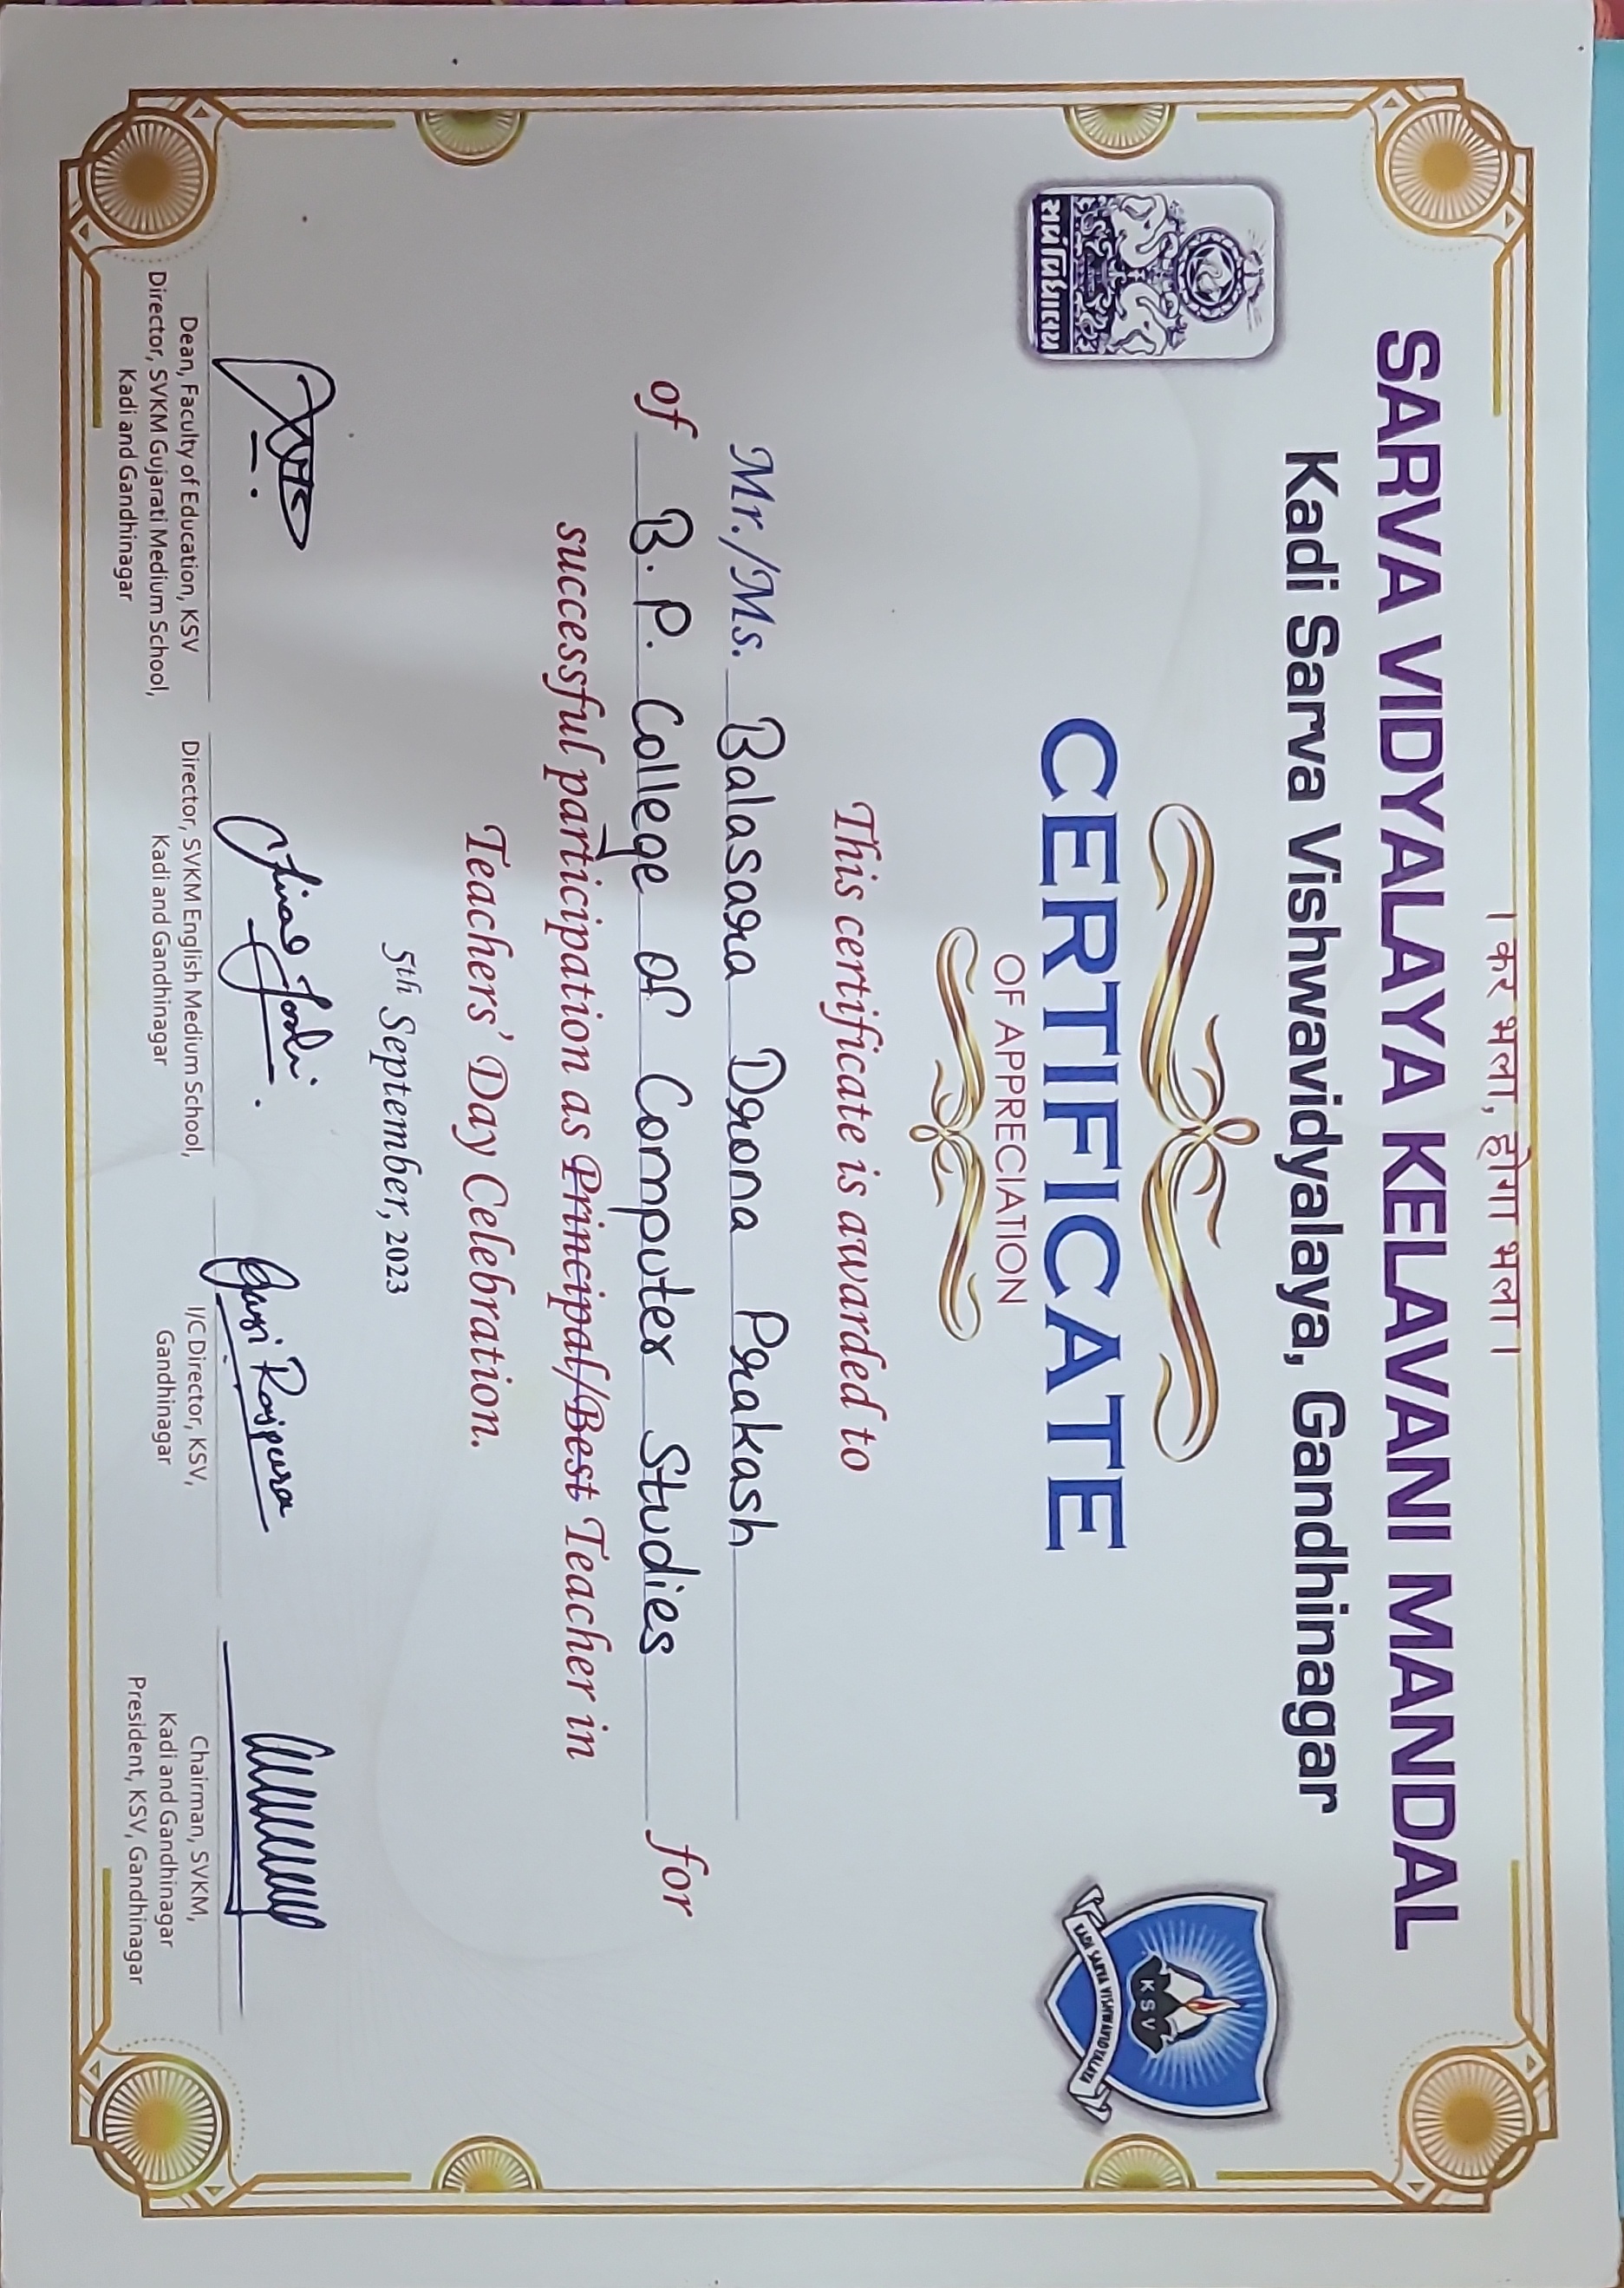 । कर भला, होगा भला।
SARVA VIDYALAYA KELAVANI MANDAL
Kadi Sarva Vishwavidyalaya, Gandhinagar
સર્વ વિદ્યાલય
KSV
KADI SARVA VISHWAVIDYALAYA
CERTIFICATE
OF APPRECIATION
This certificate is awarded to
Mr./Ms. Balasara Drona Prakash
of B. P. College of Computer Studies for
successful participation as Principal/Best Teacher in
Teachers' Day Celebration.
5th September, 2023
Joshi
Rajpura
Dean, Faculty of Education, KSV
Director, SVKM Gujarati Medium School,
Kadi and Gandhinagar
Director, SVKM English Medium School,
Kadi and Gandhinagar
I/C Director, KSV,
Gandhinagar
Chairman, SVKM,
Kadi and Gandhinagar
President, KSV, Gandhinagar